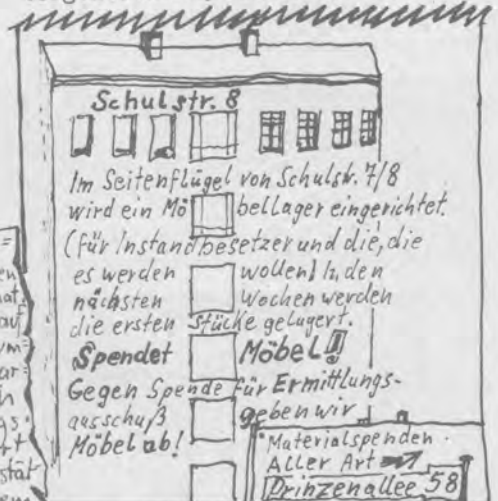 Schulstr. 8
Im Seitenflügel von Schulstr. 7/8
wird ein Möbellager eingerichtet.
(für Instandbesetzer und die, die
es werden wollen) In den
nächsten Wochen werden
die ersten Stücke gelagert.
Spendet Möbel!!
Gegen Spende für Ermittlungs-
ausschuß geben wir
Möbel ab!
Materialspenden
Aller Art
Prinzenallee 58